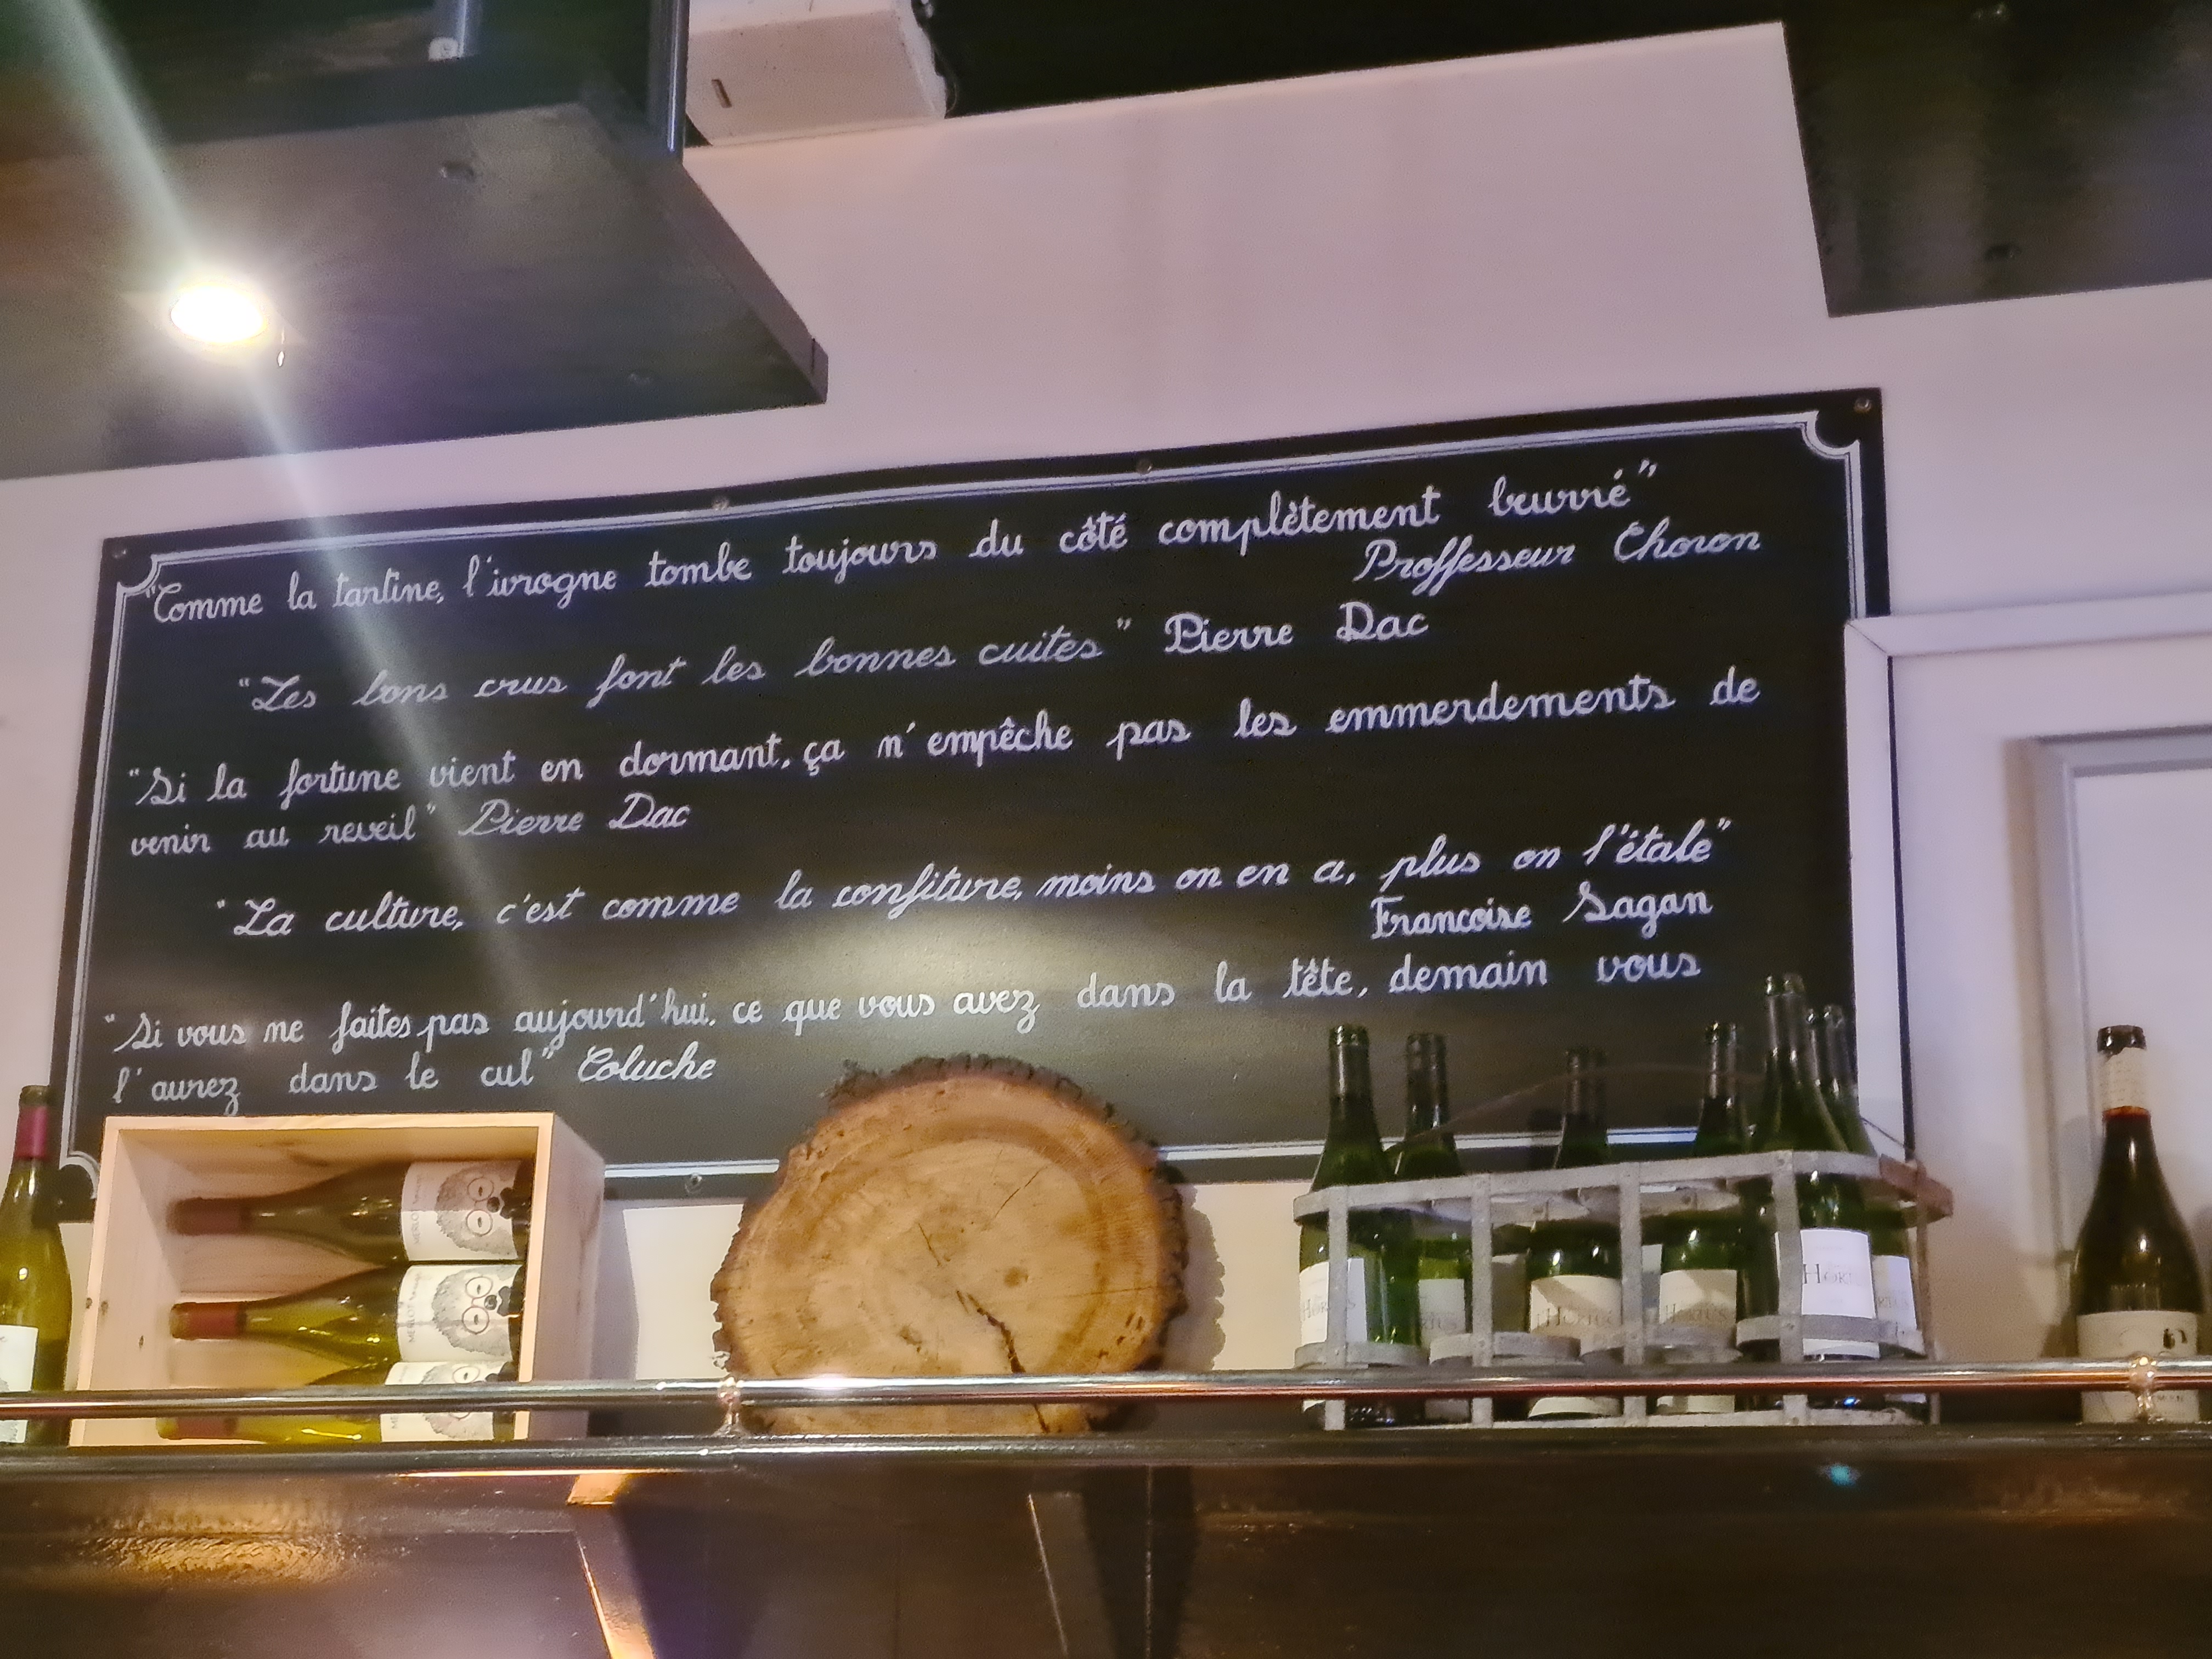 "Comme la tartine, l'ivrogne tombe toujours du côté complètement beurré"
Proffesseur Choron
"Les bons crus font les bonnes cuites" Pierre Dac
"Si la fortune vient en dormant, ça n'empêche pas les emmerdements de
venir au reveil" Pierre Dac
"La culture, c'est comme la confiture, moins on en a, plus on l'étale"
Francoise Sagan
"Si vous ne faites pas aujourd'hui, ce que vous avez dans la tête, demain vous
l'aurez dans le cul" Coluche